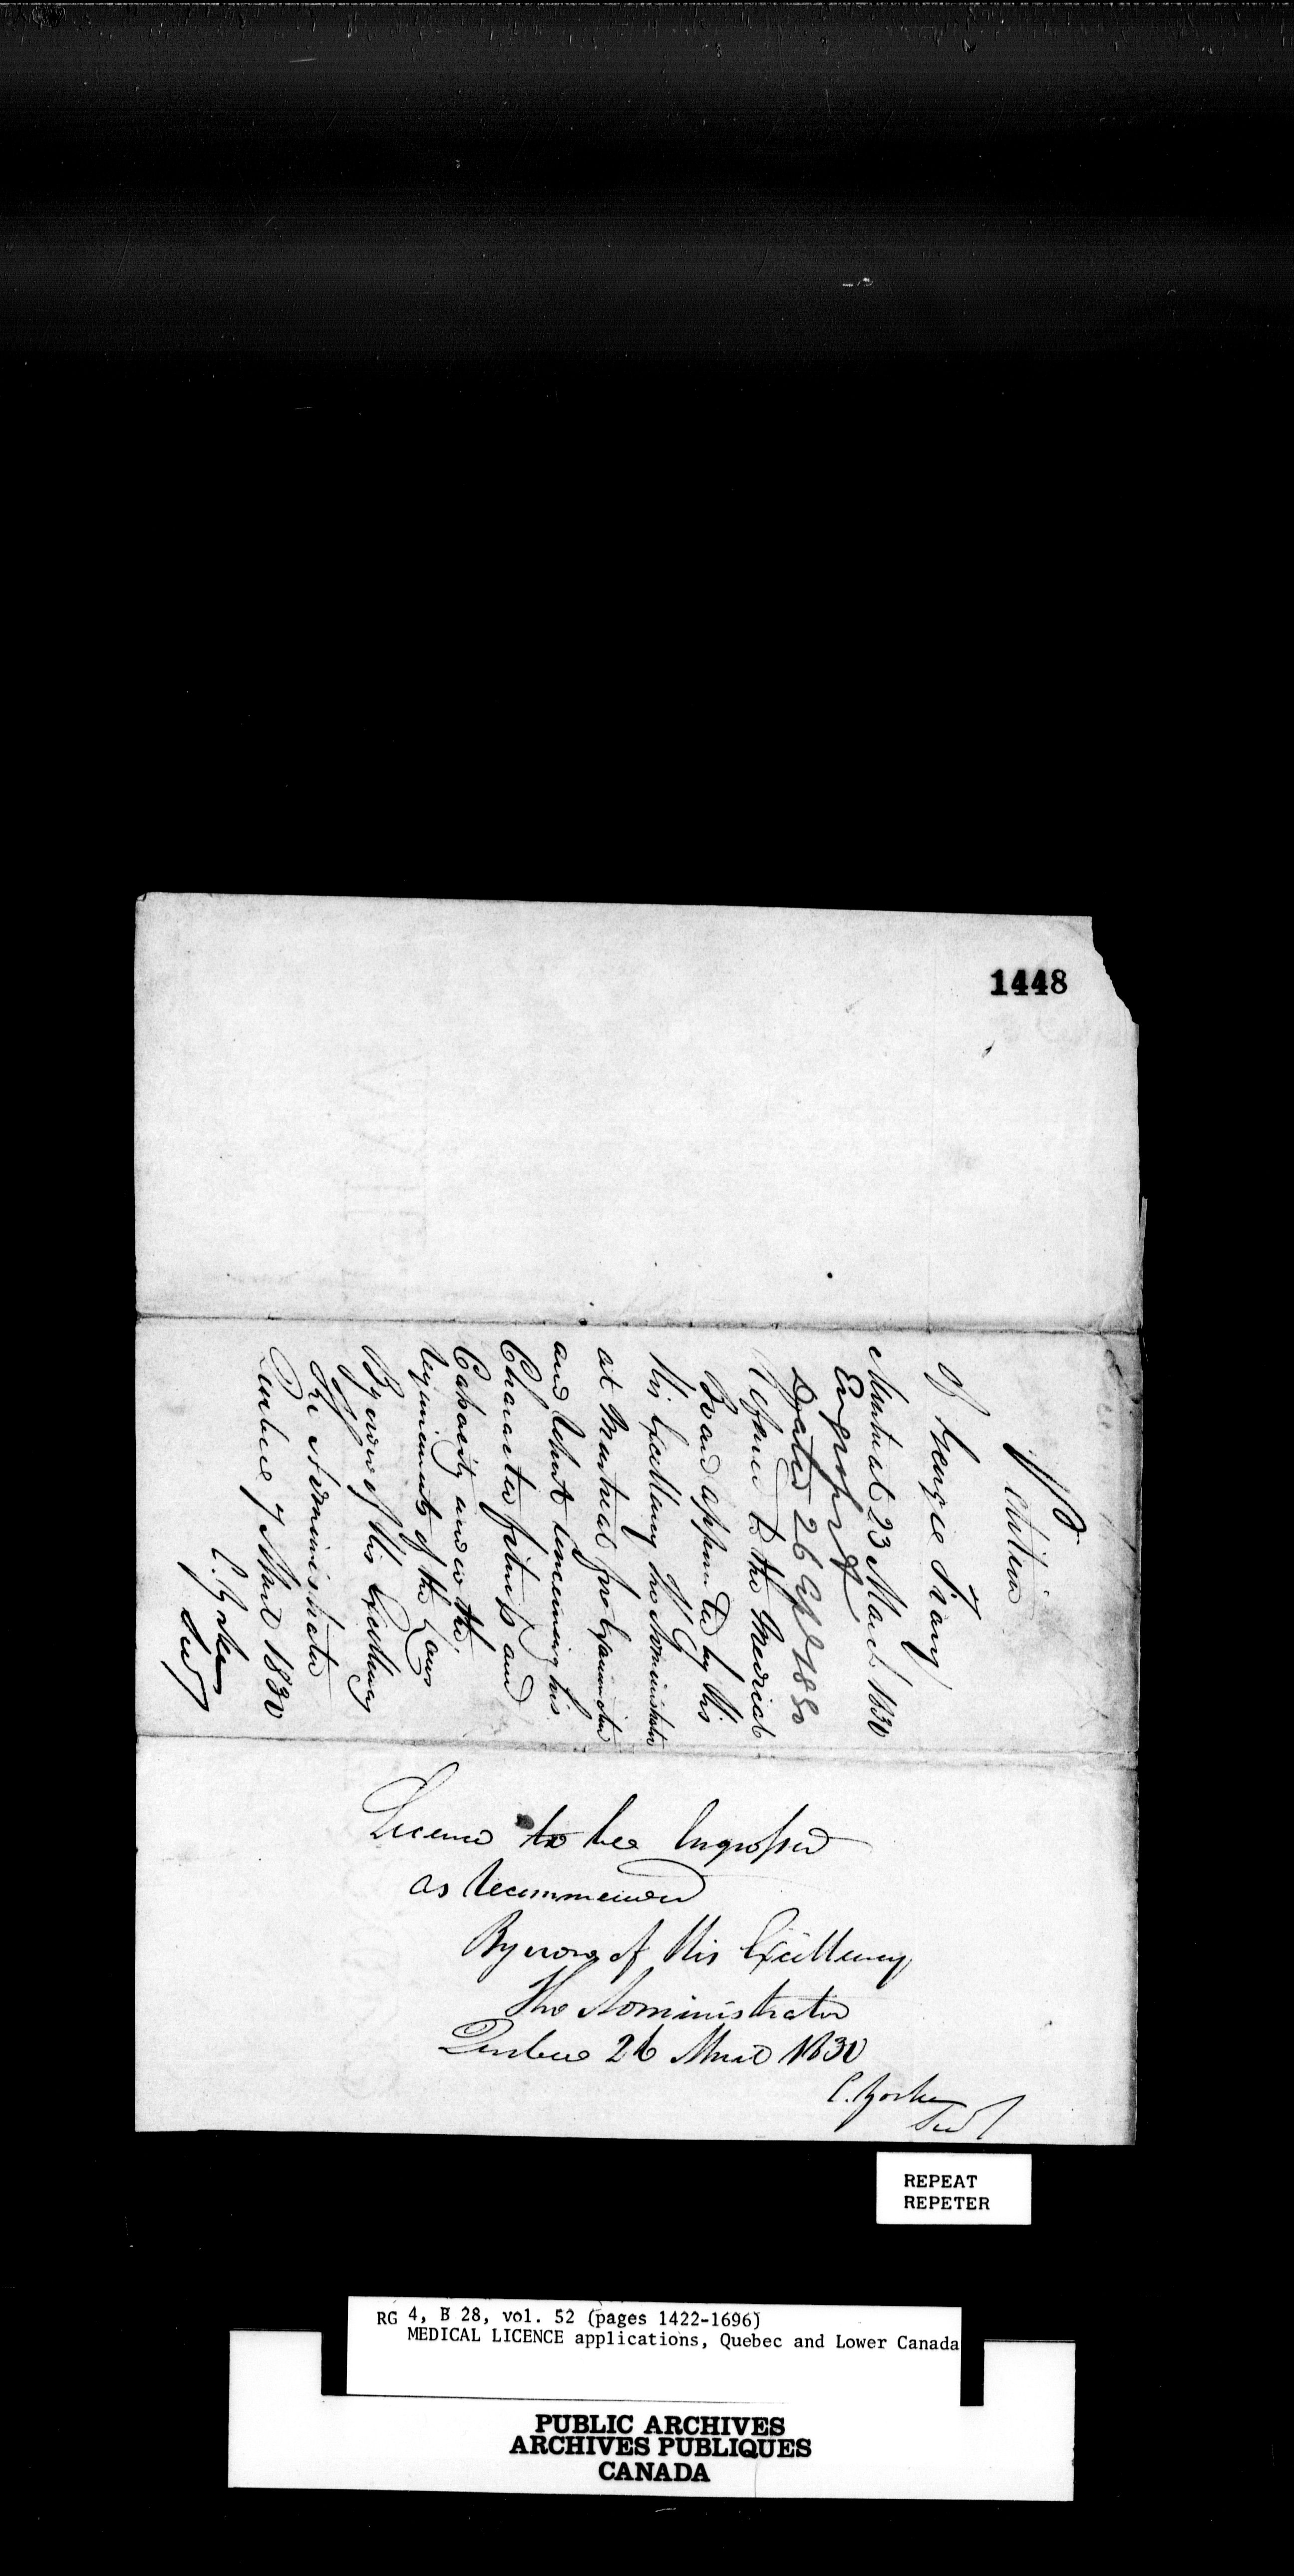 1448
Petition
of
Montreal 23 March 1830
Engrossed
Dated 26 Apl 1830
Referred to the Medical
Board appointed by His
His Excellency the Administrator
at Montreal for Examination
and Report concerning his
Character fitness and
Capacity under the
requirements of the Law
By order of His Excellency
The Administrator
Quebec 7 1830
C. Yorke
Secy
Licence to be Engrossed
as recommended
By order of His Excellency
The Administrator
Quebec 26 1830
C. Yorke
Secy
REPEAT
REPETER
RG 4, B 28, vol. 52 (pages 1422-1696)
MEDICAL LICENCE applications, Quebec and Lower Canada
PUBLIC ARCHIVES
ARCHIVES PUBLIQUES
CANADA